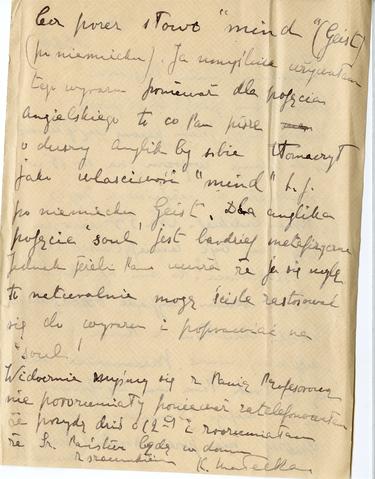 Co przez słowo "mind" (Geist)
(po niemiecku). Ja umyślnie używałam
tego wyrazu ponieważ dla pojęcia
Angielskiego to co Pan pisze
o duszy Anglik by sobie tłomaczył
jako właściwość "mind" t.j.
po niemiecku Geist. Dla anglika
pojęcia "soul" jest bardziej metafizyczne
Jednak jeżeli Pan uważa że ja się mylę
to naturalnie mogę ściśle zastosować
się do wyrazu i poprawiać na
"soul."
Widocznie myśmy się z Panią Profesorową
nie porozumiały ponieważ zatelefonowałam
że przyjdę dziś o i zrozumiałam
że będą w domu
z szacunkiem K. Małecka